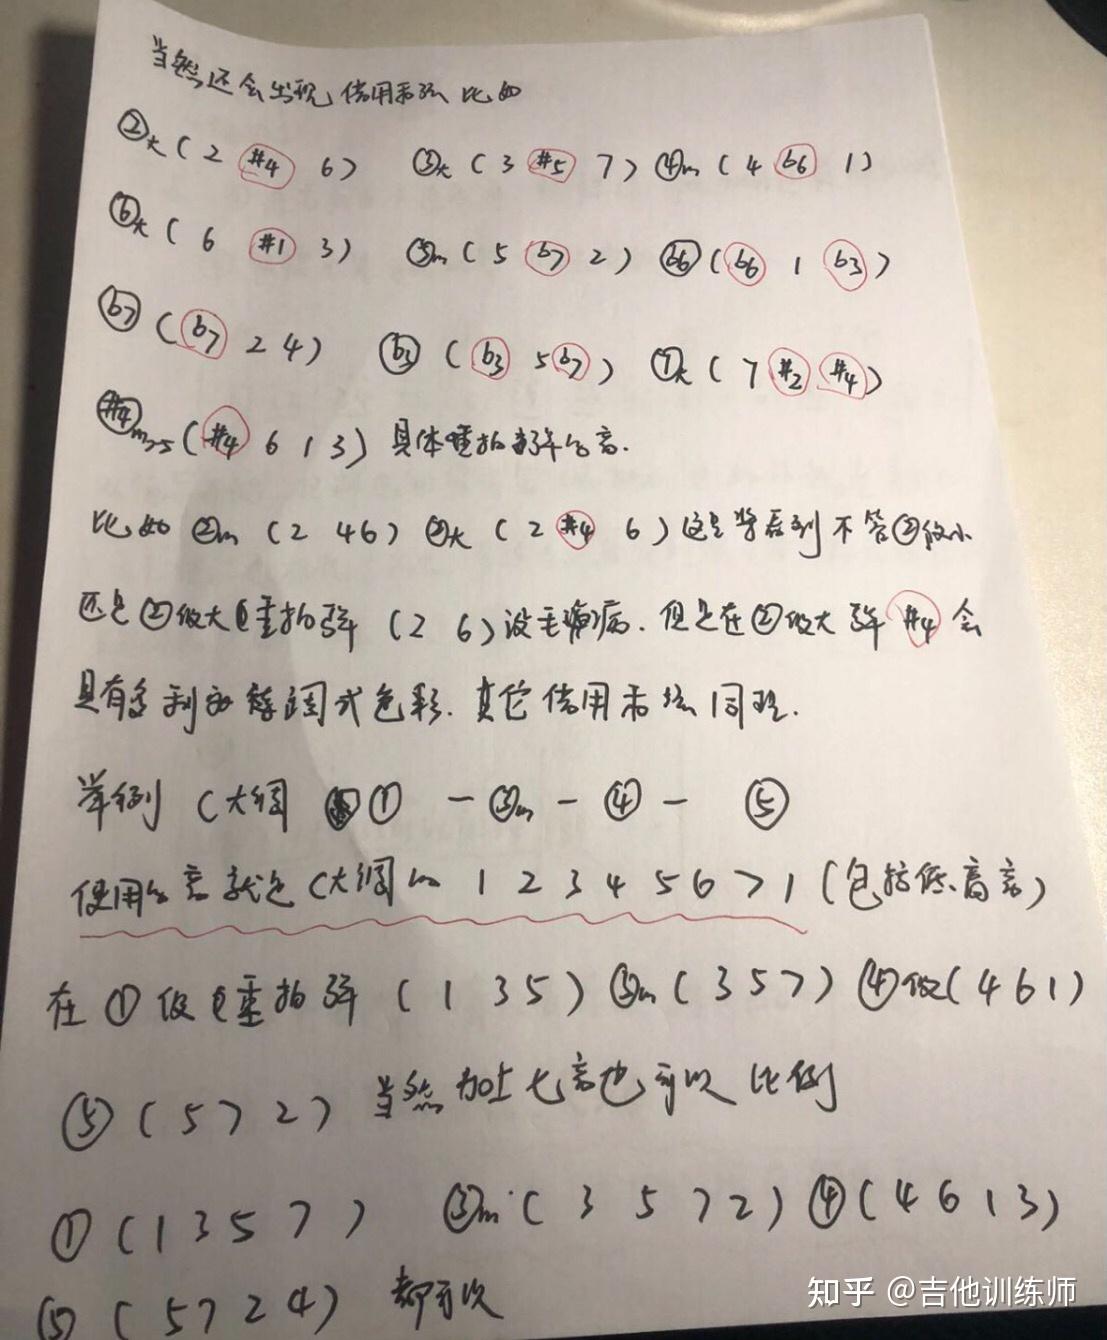 当然还会出现借用和弦 比如
②大(2 #4 6) ③大(3 #5 7) ④m(4 b6 1)
⑥大(6 #1 3) ⑤m(5 b7 2) b6(b6 1 b3)
b7(b7 2 4) b3(b3 5 b7) ⑦大(7 #2 #4)
#4m7-5(#4 6 1 3) 具体重拍弹的音.
比如 ②m(2 4 6) ②大(2 #4 6)这是当看到 不管②级小
还是②级大 重拍弹(2 6)没毛病. 但是在②级大 弹 #4 会
具有多利亚 调式色彩. 其它借用和弦同理.
举例 C大调 ① - ③m - ④ - ⑤
使用的音就是C大调的 1 2 3 4 5 6 7 1(包括低、高音)
在①级 重拍弹(1 3 5) ③m(3 5 7) ④级(4 6 1)
⑤(5 7 2) 当然加上七音也可以 比例
①(1 3 5 7) ③m(3 5 7 2) ④(4 6 1 3)
⑤(5 7 2 4) 都可以
知乎 @吉他训练师